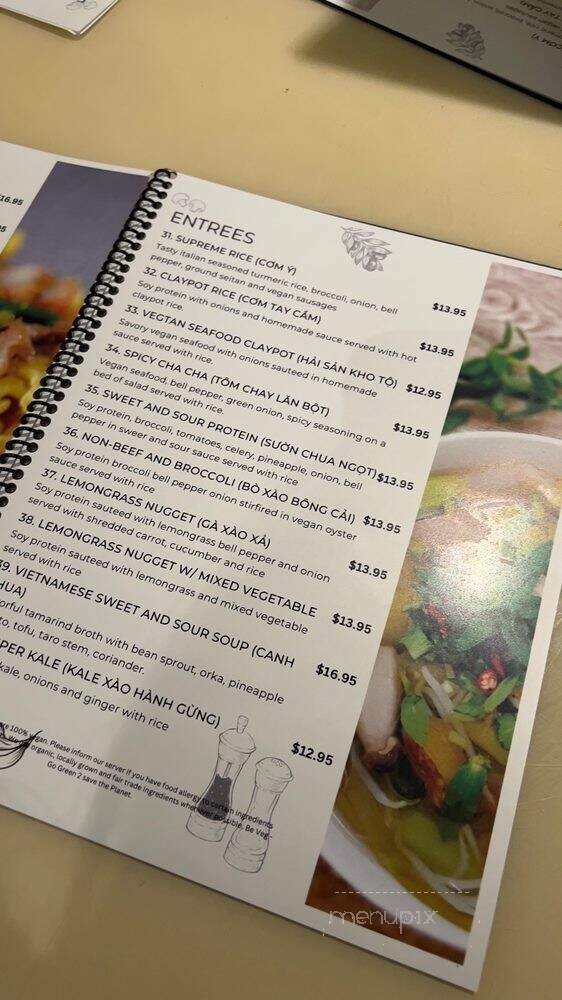 $16.95
ENTREES
31. SUPREME RICE (CƠM Ý)
Tasty italian seasoned turmeric rice, broccoli, onion, bell
pepper, ground seitan and vegan sausages
$13.95
32. CLAYPOT RICE (CƠM TAY CẦM)
Soy protein with onions and homemade sauce served with hot
claypot rice.
$13.95
33. VEGTAN SEAFOOD CLAYPOT (HẢI SẢN KHO TỘ)
Savory vegan seafood with onions sauteed in homemade
sauce served with rice.
$12.95
34. SPICY CHA CHA (TÔM CHAY LĂN BỘT)
Vegan seafood, bell pepper, green onion, spicy seasoning on a
bed of salad served with rice.
$13.95
35. SWEET AND SOUR PROTEIN (SƯỜN CHUA NGỌT)
Soy protein, broccoli, tomatoes, celery, pineapple, onion, bell
pepper in sweet and sour sauce served with rice
$13.95
36. NON-BEEF AND BROCCOLI (BÒ XÀO BÔNG CẢI)
Soy protein broccoli bell pepper onion stirfired in vegan oyster
sauce served with rice
$13.95
37. LEMONGRASS NUGGET (GÀ XÀO XẢ)
Soy protein sauteed with lemongrass bell pepper and onion
served with shredded carrot, cucumber and rice
$13.95
38. LEMONGRASS NUGGET W/ MIXED VEGETABLE
Soy protein sauteed with lemongrass and mixed vegetable
served with rice
$13.95
39. VIETNAMESE SWEET AND SOUR SOUP (CANH
HUA)
orful tamarind broth with bean sprout, orka, pineapple
to, tofu, taro stem, coriander.
$16.95
PER KALE (KALE XÀO HÀNH GỪNG)
kale, onions and ginger with rice
$12.95
re 100% vegan. Please inform our server if you have food allergy to certain ingredients
organic, locally grown and fair trade ingredients whenever possible. Be Veg -
Go Green 2 save the Planet.
menupix